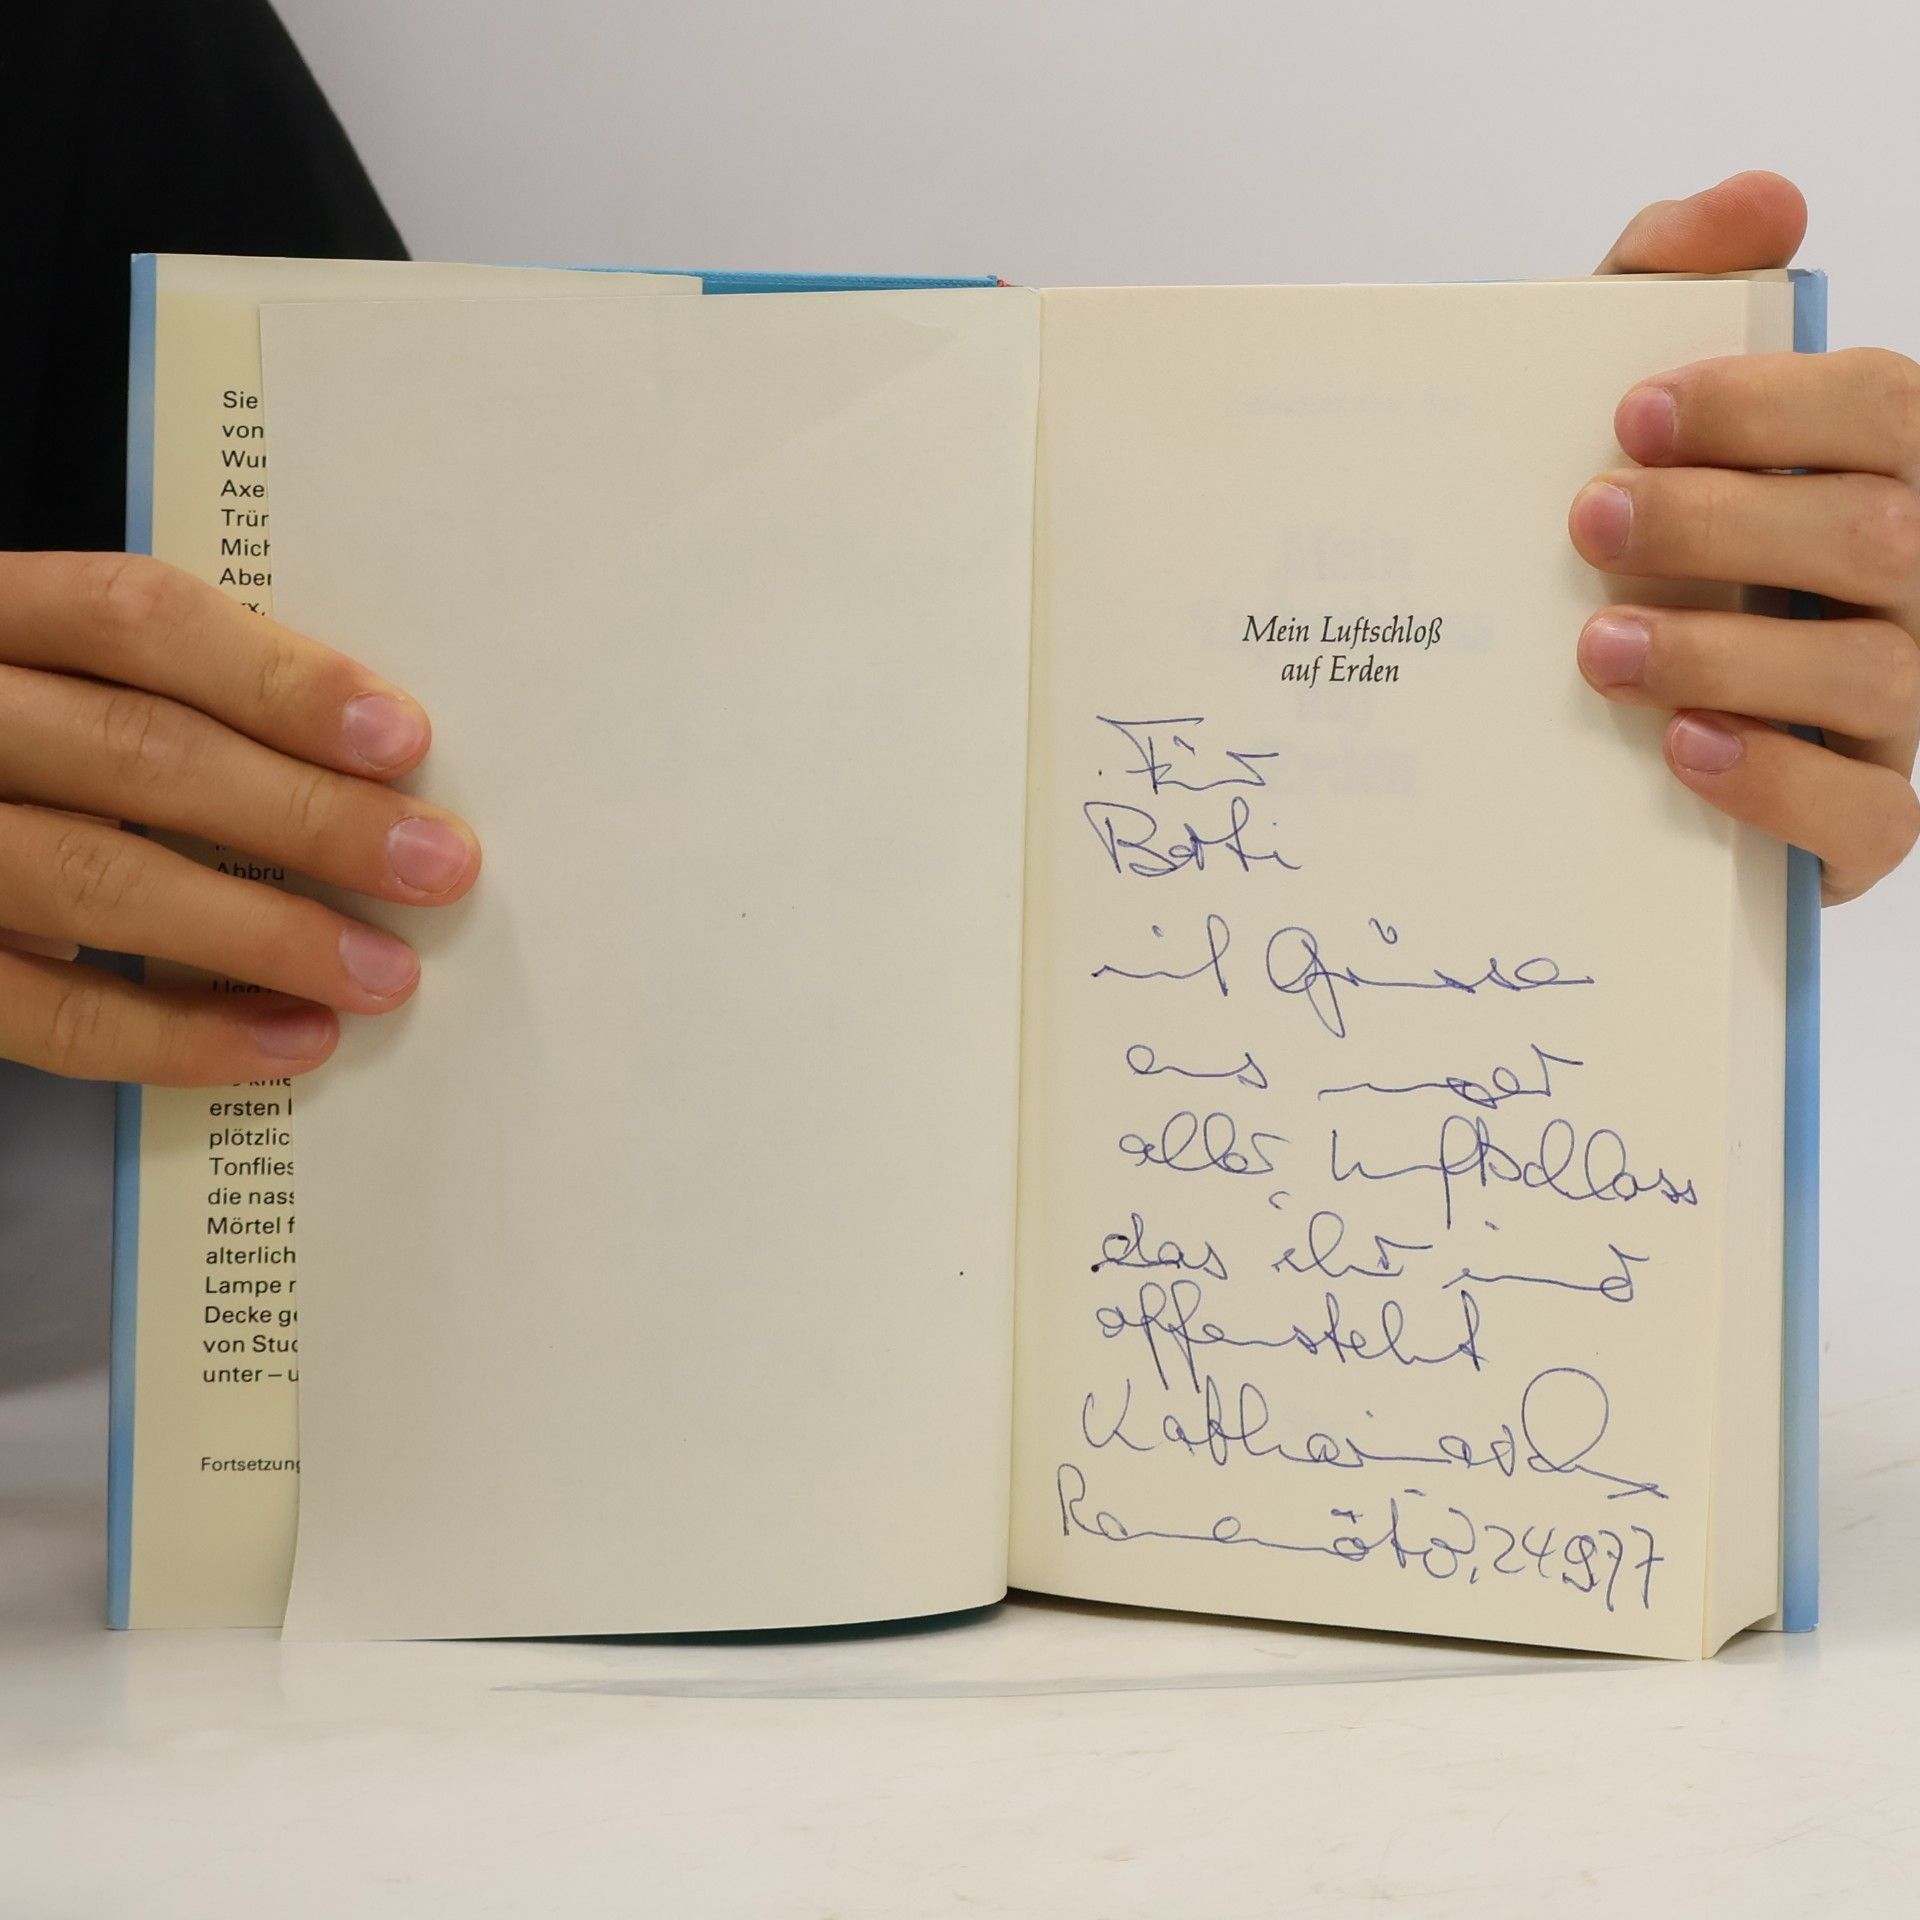 Sie
von
Wur
Axe
Trür
Mich
Aber
Abbru
ersten l
plötzlic
Tonflies
die nass
Mörtel f
alterlich
Lampe r
Decke ge
von Stuc
unter – u
Fortsetzung
Mein Luftschloß
auf Erden
Für
Berti
mit Grüsse
aus unser
aller Luftschloss
das ihr
offensteht
Katharina
24 9 77